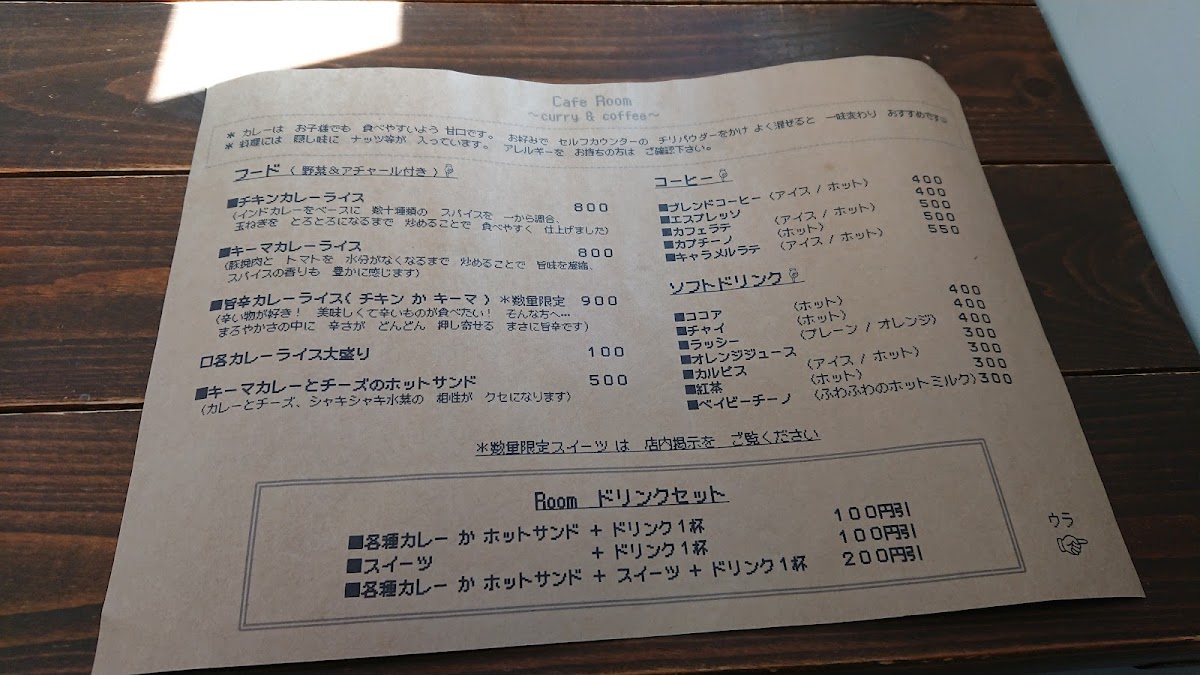 Cafe Room
～curry & coffee～
＊ カレーは お子様でも 食べやすいよう 甘口です。 お好みで セルフカウンターの チリパウダーをかけ よく混ぜると 一味変わり おすすめです
＊ 料理には 隠し味に ナッツ等が 入っています。 アレルギーを お持ちの方は ご確認下さい。
フード （ 野菜＆アチャール付き ）
■チキンカレーライス 800
（インドカレーをベースに 数十種類の スパイスを 一から調合、
玉ねぎを とろとろになるまで 炒めることで 食べやすく 仕上げました）
■キーマカレーライス 800
（豚挽肉と トマトを 水分がなくなるまで 炒めることで 旨味を凝縮、
スパイスの香りも 豊かに感じます）
■旨辛カレーライス（ チキン か キーマ ） ＊数量限定 900
（辛い物が好き！ 美味しくて辛いものが食べたい！ そんな方へ…
まろやかさの中に 辛さが どんどん 押し寄せる まさに旨辛です）
□各カレーライス大盛り 100
■キーマカレーとチーズのホットサンド 500
（カレーとチーズ、シャキシャキ水菜の 相性が クセになります）
コーヒー
■ブレンドコーヒー（アイス / ホット） 400
■エスプレッソ 400
■カフェラテ （アイス / ホット） 500
■カプチーノ （ホット） 500
■キャラメルラテ （アイス / ホット） 550
ソフトドリンク
■ココア （ホット） 400
■チャイ （ホット） 400
■ラッシー （プレーン / オレンジ） 400
■オレンジジュース 300
■カルピス （アイス / ホット） 300
■紅茶 （ホット） 300
■ベイビーチーノ （ふわふわのホットミルク）300
＊数量限定スイーツ は 店内掲示を ご覧ください
Room ドリンクセット
■各種カレー か ホットサンド ＋ ドリンク１杯 100円引
■スイーツ ＋ ドリンク１杯 100円引
■各種カレー か ホットサンド ＋ スイーツ ＋ ドリンク１杯 200円引
ウラ